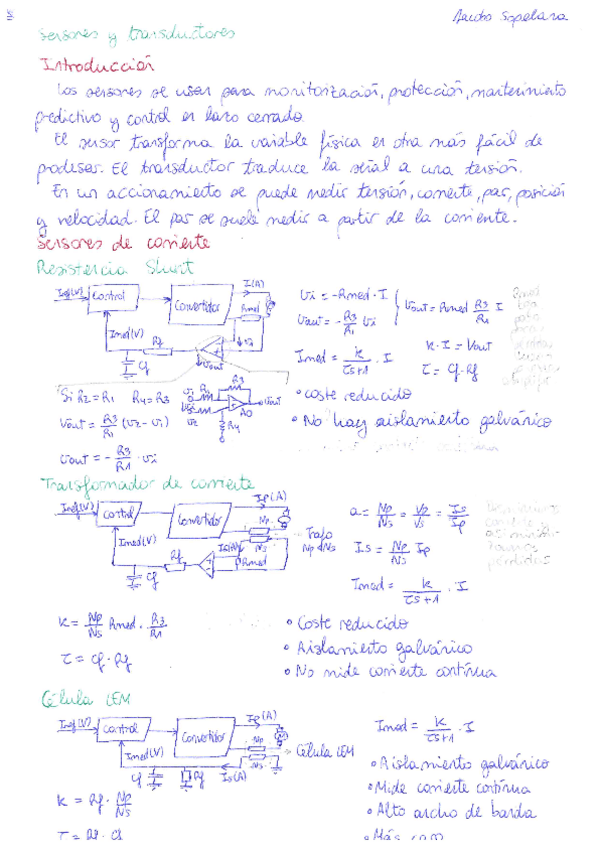 Nacho Sopelana
Sensores y transductores
Introducción
Los sensores se usan para monitorización, protección, mantenimiento
predictivo y control en lazo cerrado.
El sensor transforma la variable física en otra más fácil de
procesar. El transductor traduce la señal a una tensión.
En un accionamiento se puede medir tensión, corriente, par, posición
y velocidad. El par se suele medir a partir de la corriente.
Sensores de corriente
Resistencia Shunt
Iref(V) Control Convertidor I(A) Rmed
Imed(V) Rf Cf Vout Vi
Vi = -Rmed · I
Vout = -R3/R1 Vi
Vout = Rmed R3/R1 I
Imed = k/(τs+1) · I
k · I = Vout
τ = Cf · Rf
Si R2 = R1 R4 = R3
Vout = R3/R1 (V2 - V1)
Vout = - R3/R1 · Vi
V1 R1 R3 V2 R4 AO Vout
• Coste reducido
• No hay aislamiento galvánico
Transformador de corriente
Iref(V) Control Convertidor Ip(A)
Imed(V) Rf Cf Is(A) Np Ns Rmed
Trafo
a = Np/Ns = Vp/Vs = Is/Ip
Is = Np/Ns Ip
Imed = k/(τs+1) · I
k = Np/Ns Rmed · R3/R1
τ = Cf · Rf
• Coste reducido
• Aislamiento galvánico
• No mide corriente continua
Célula LEM
Iref(V) Control Convertidor Ip(A)
Imed(V) Cf Rf Is(A) Np Ns
Célula LEM
Imed = k/(τs+1) · I
k = Rf · Np/Ns
τ = Rf · Cf
• Aislamiento galvánico
• Mide corriente continua
• Alto ancho de banda
• Más caro